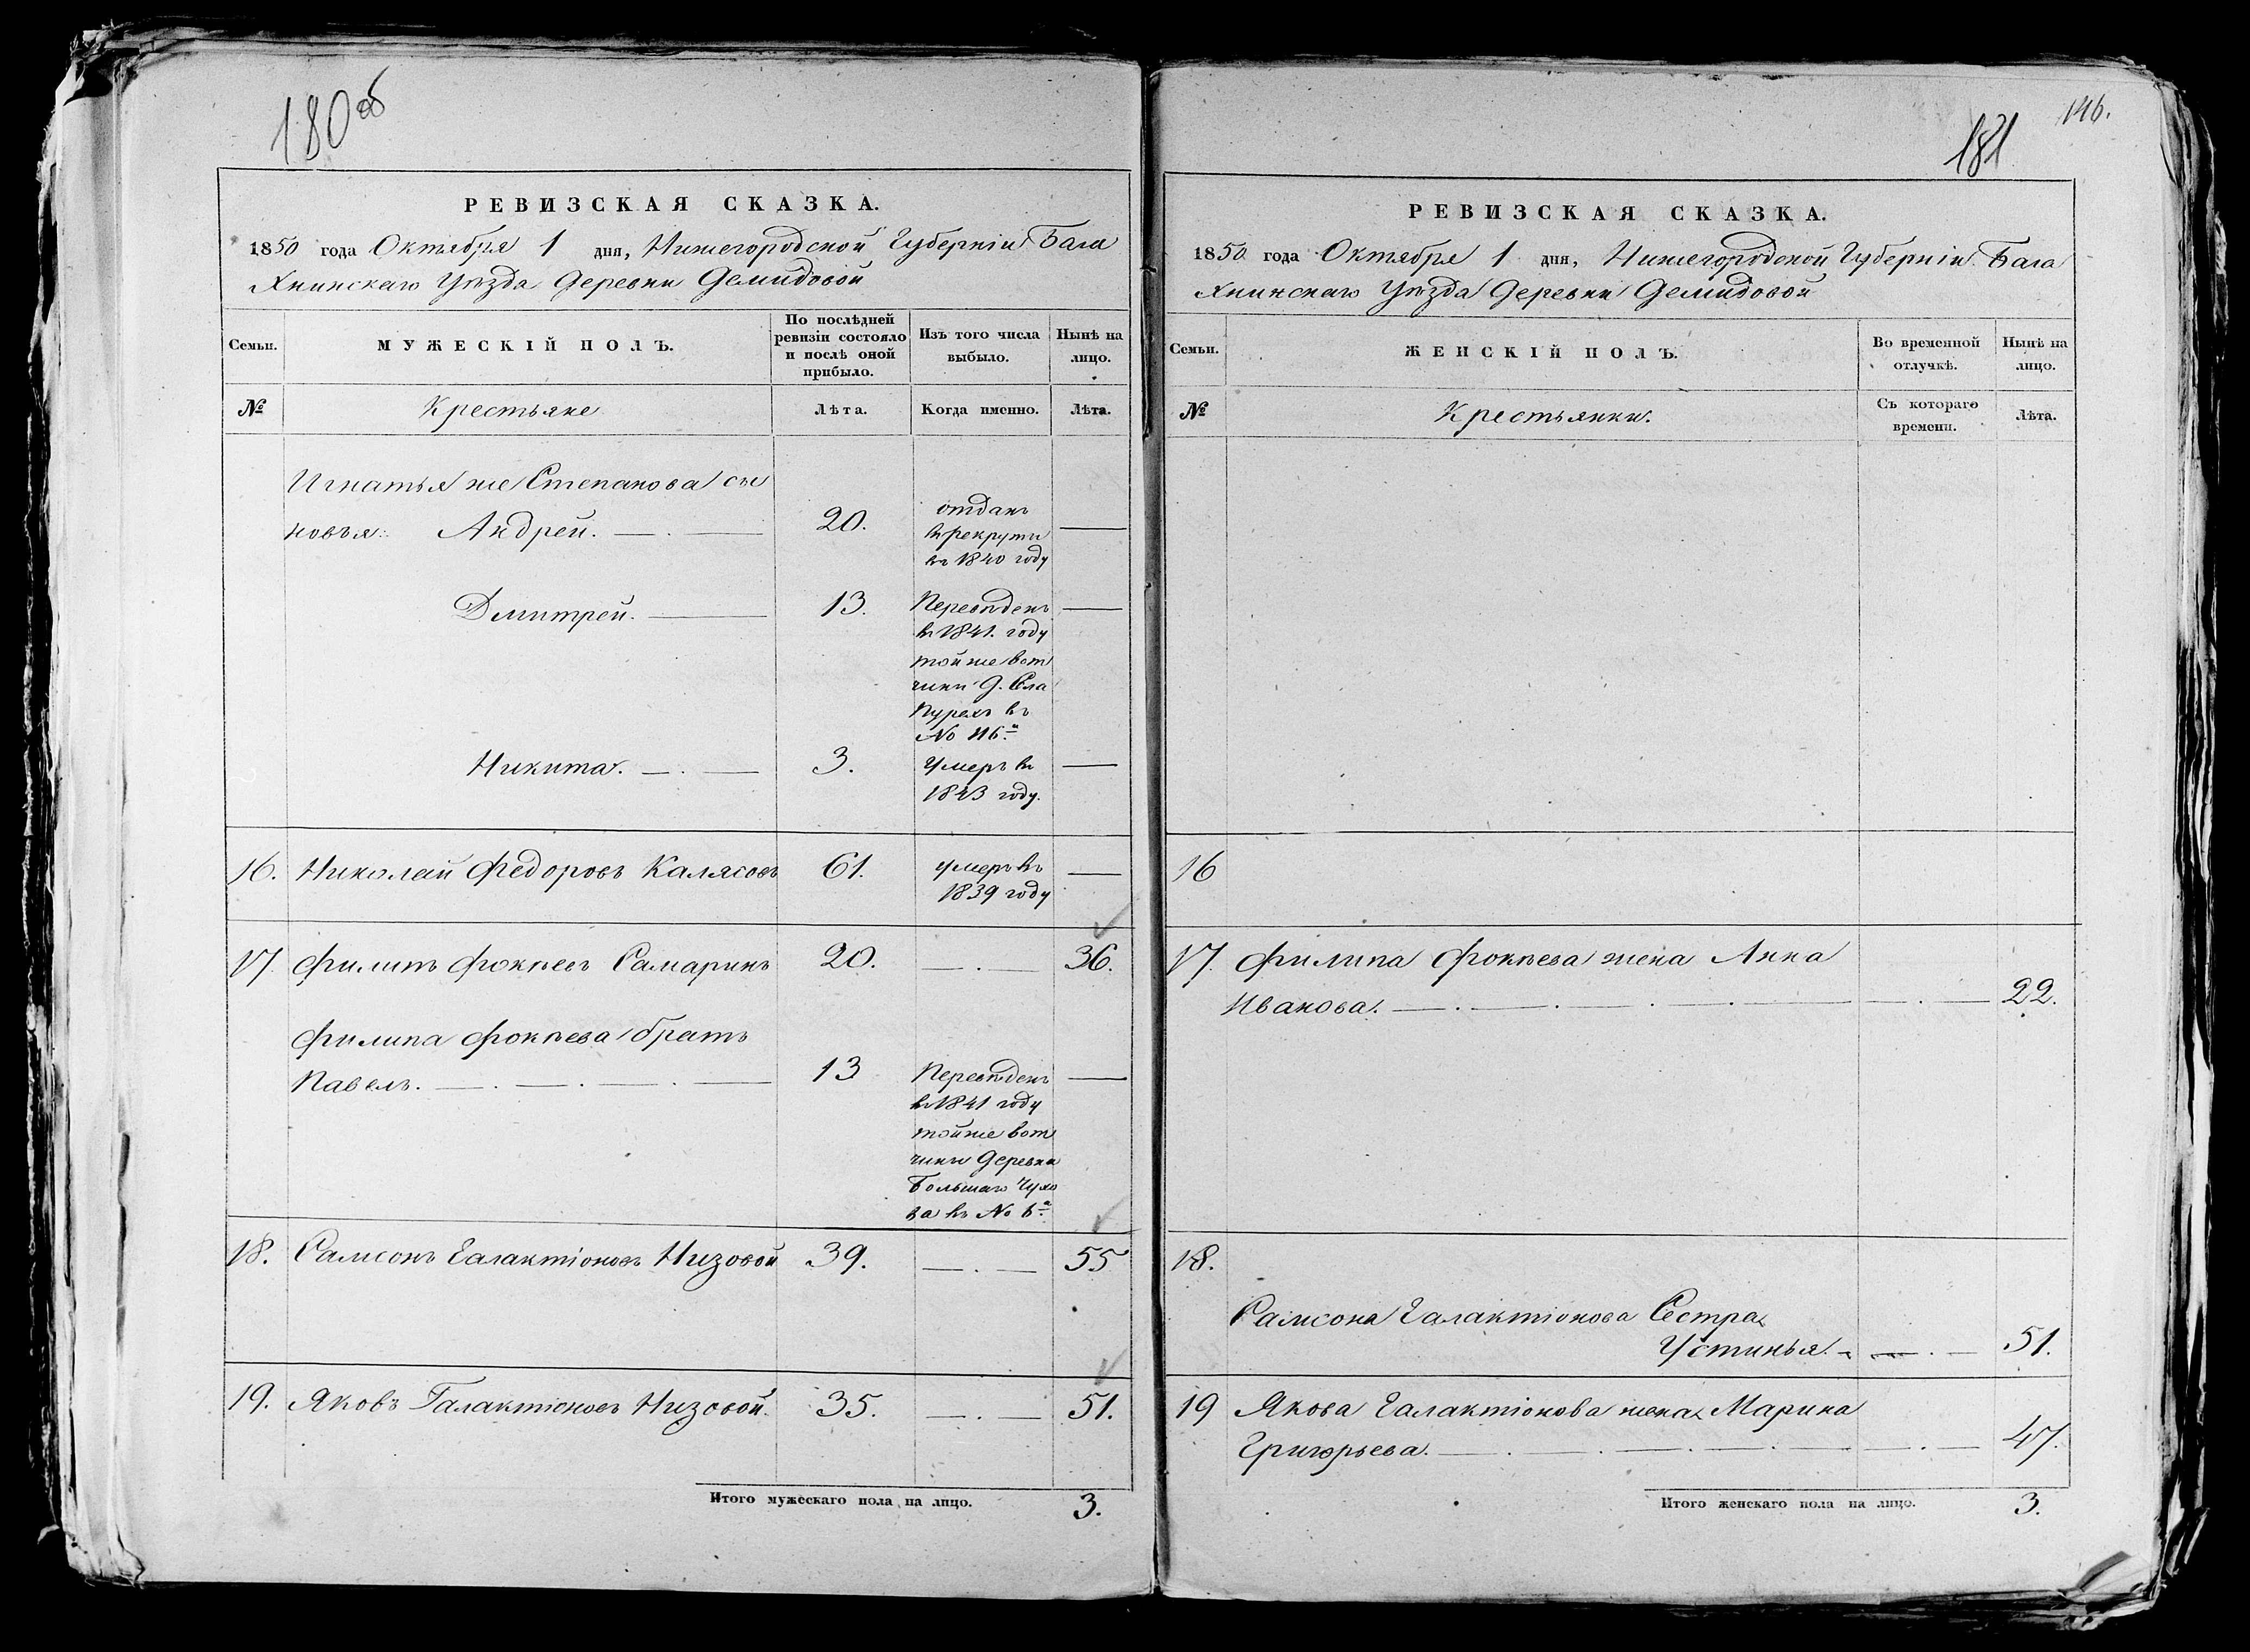 180 об
РЕВИЗСКАЯ СКАЗКА.
1850 года Октября 1 дня, Нижегородской Губерніи Бала
хнинскаго Уѣзда Деревни Демидовой
Семьи.
МУЖЕСКІЙ ПОЛЪ.
По послѣдней ревизіи состояло и послѣ оной прибыло.
Изъ того числа выбыло.
Нынѣ на лицо.
№
Крестьяне
Лѣта.
Когда именно.
Лѣта.
Игнатья же Степанова сы
новья: Андрей. 20. отданъ
въ рекруты
въ 1840 году
Дмитрей. 13. Переведенъ
въ 1841. году
той же вот
чины д. Села
Пурехъ въ
№ 116й
Никита. 3. Умеръ въ
1843 году.
16. Николай Федоровъ Калясовъ 61. умеръ въ
1839 году
17. Филипъ Фокѣевъ Самаринъ 20. 36.
Филипа Фокѣева братъ
Павелъ. 13 Переведенъ
въ 1841 году
той же вот
чины Деревни
Большаго Чухо
ва въ № 6й
18. Самсонъ Галактіоновъ Низовой 39. 55
19. Яковъ Галактіоновъ Низовой. 35. 51.
Итого мужескаго пола на лицо. 3.
146.
181
РЕВИЗСКАЯ СКАЗКА.
1850 года Октября 1 дня, Нижегородской Губерніи Бала
хнинскаго Уѣзда Деревни Демидовой
Семьи.
ЖЕНСКІЙ ПОЛЪ.
Во временной отлучкѣ.
Нынѣ на лицо.
№
Крестьянки.
Съ котораго времени.
Лѣта.
16
17. Филипа Фокѣева жена Анна
Иванова. 22.
18.
Самсона Галактіонова Сестра
Устинья. 51.
19 Якова Галактіонова жена Марина
Григорьева. 47.
Итого женскаго пола на лицо. 3.